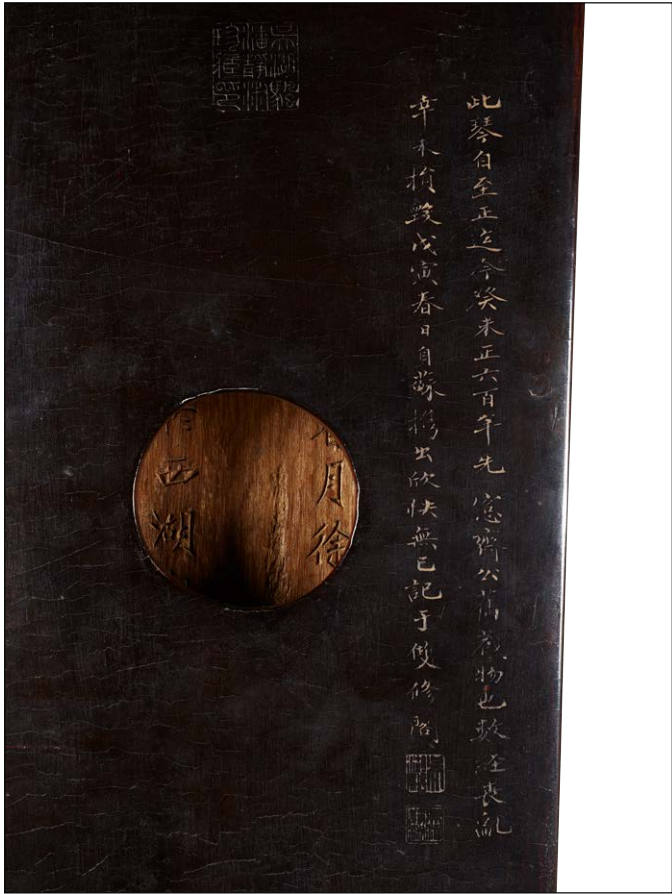 此琴自至正迄今癸未正六百年先 愙齋公舊藏物也數經喪亂
幸未損毀戊寅春日自蘇携出欣快無已記于雙修閣
吳湖颿
潘靜淑
珍藏印
月徐
西湖